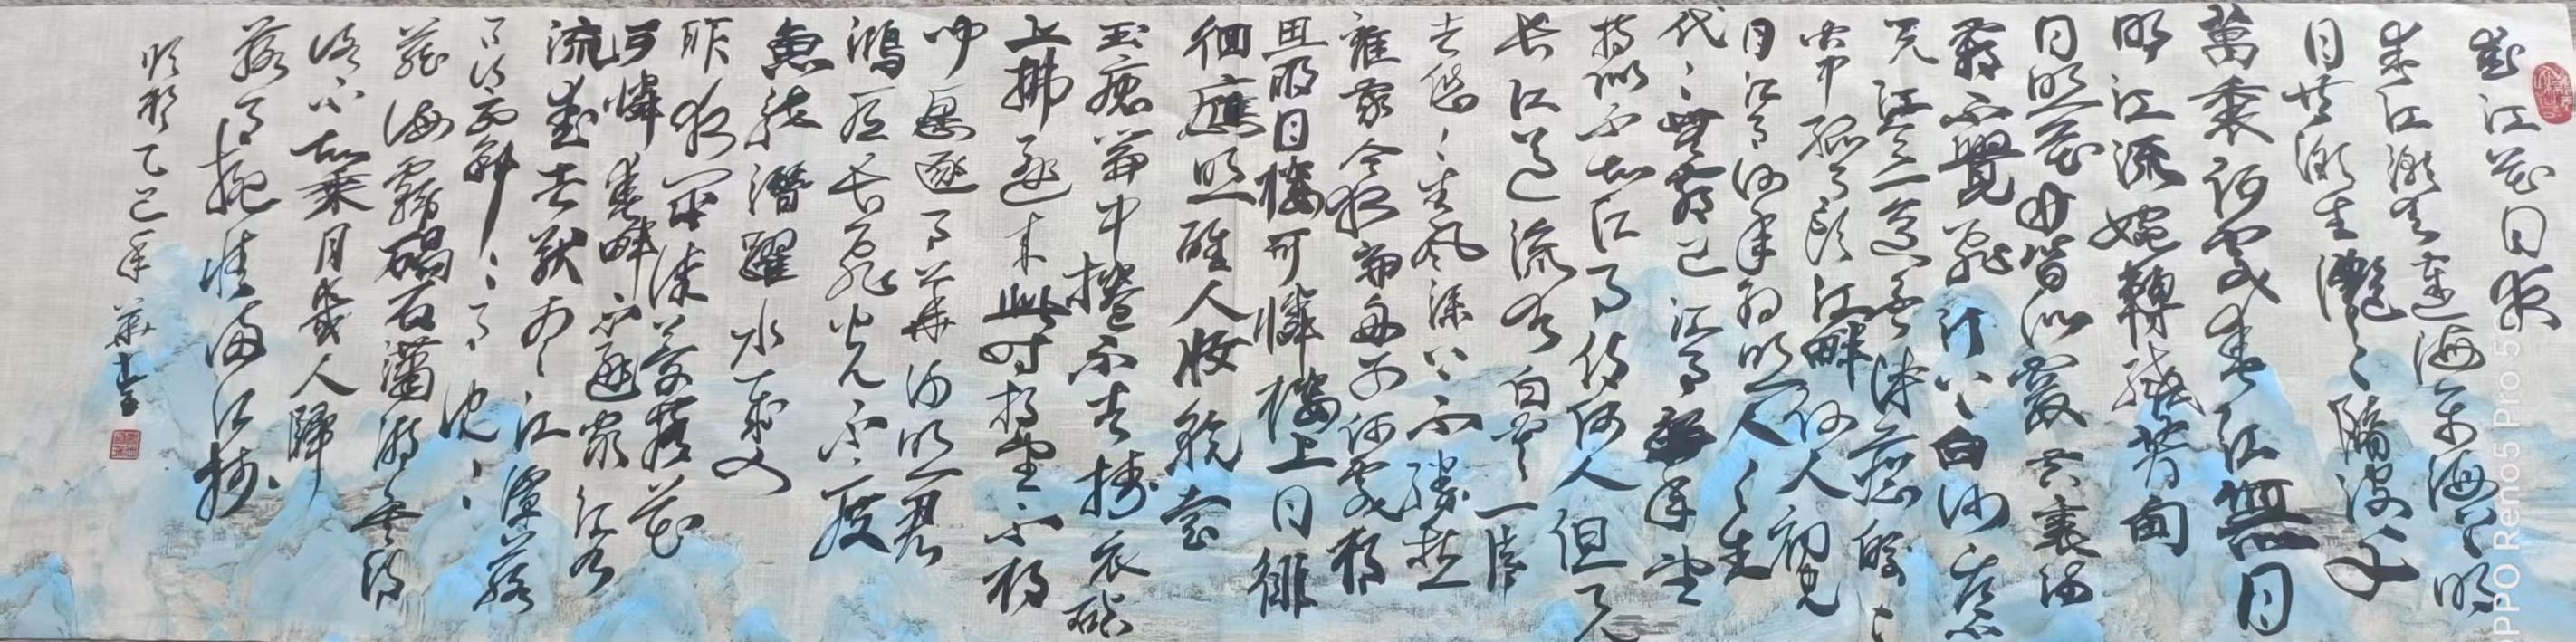 春江花月夜
春江潮水連海平海上明
月共潮生灔灔隨波千
萬里何處春江無月
明江流婉轉繞芳甸
月照花林皆似霰空裏流
霜不覺飛汀上白沙看不
見江天一色無纖塵皎皎
空中孤月輪江畔何人初見
月江月何年初照人人生
代代無窮已江月年年望
相似不知江月待何人但見
長江送流水白雲一片
去悠悠青風浦上不勝愁
誰家今夜扁舟子何處相
思明月樓可憐樓上月徘
徊應照離人妝鏡台
玉户簾中捲不去擣衣砧
上拂還來此時相望不相
聞願逐月華流照君
鴻雁長飛光不度
魚龍潛躍水成文
昨夜閑潭夢落花
可憐春畔不還家江水
流春去欲盡江潭落
月復西斜斜月沉沉
藏海霧碣石瀟湘無限
路不知乘月幾人歸
落月搖情滿江樹
乙巳年
PPO Reno5 Pro 5G